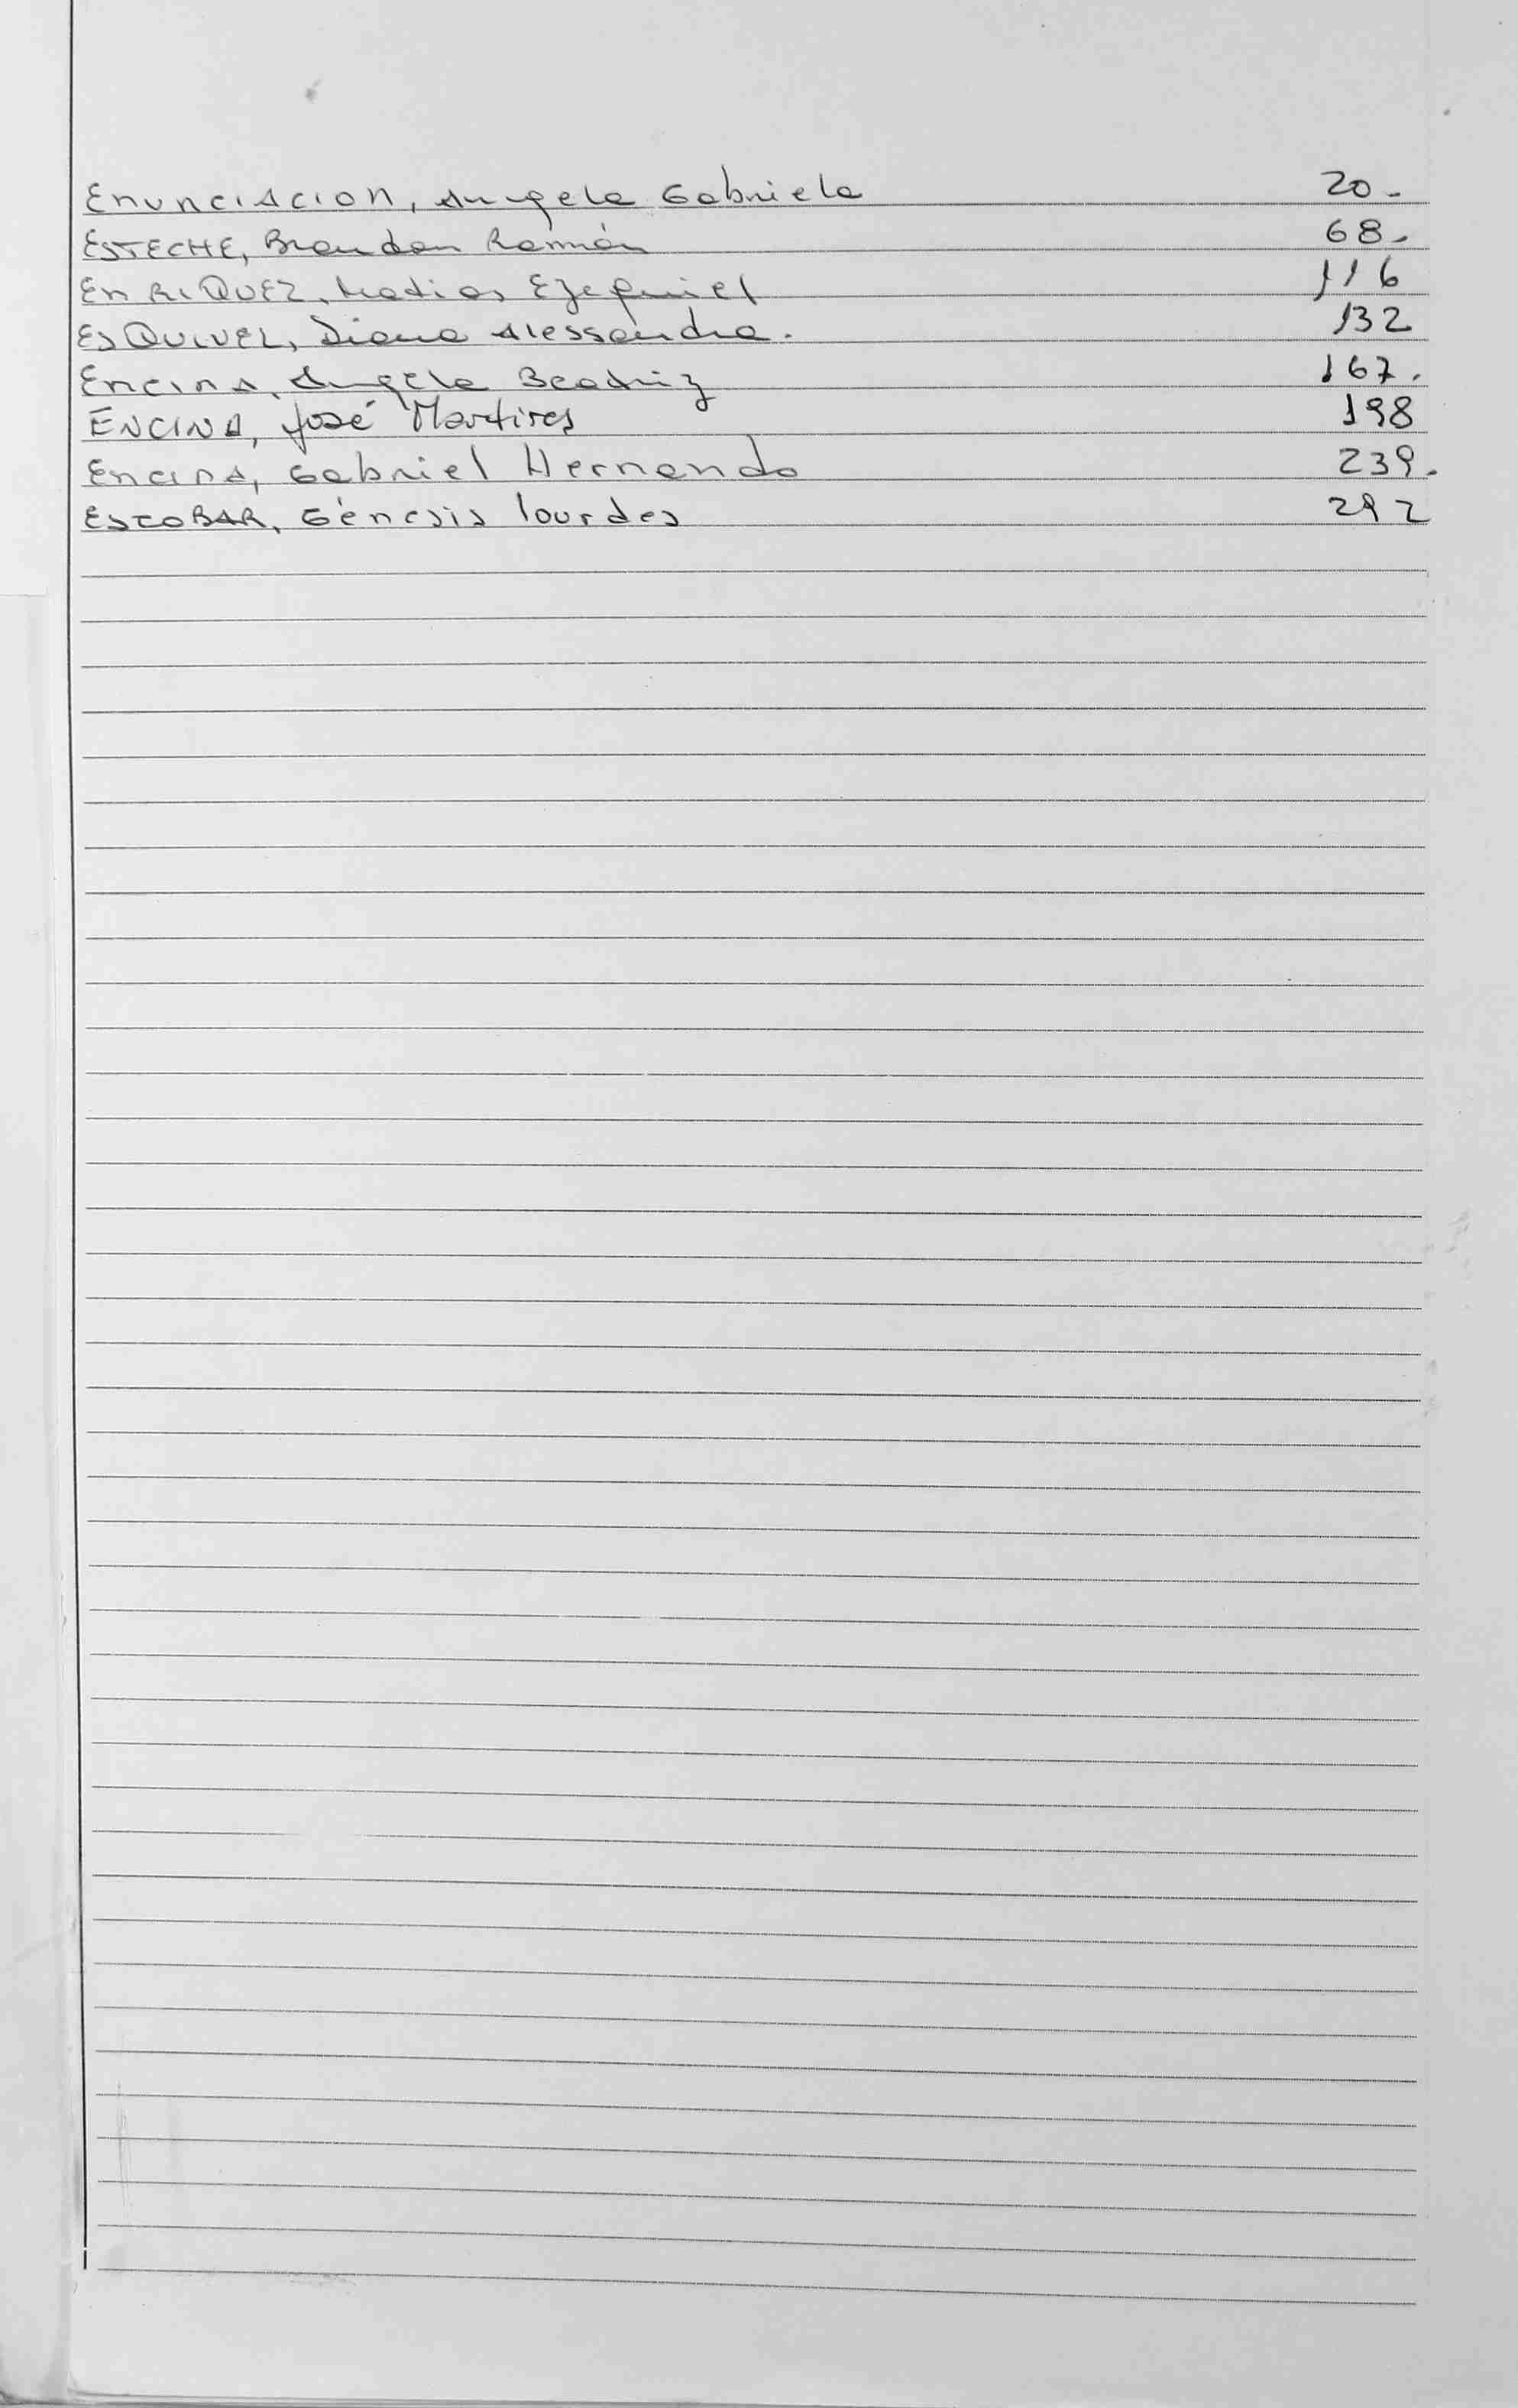 Enunciacion, Angela Gabriela 20.-
ESTECHE, Brandon Ramón 68.-
EnRiQUEZ, Matias Ezequiel 116
EsQUIVEL, Diana Alessandra. 132
Encina, Angela Beatriz 167.
ENCINA, José Martires 198
Encina, Gabriel Hernando 239.
ESCOBAR, Génesis lourdes 292